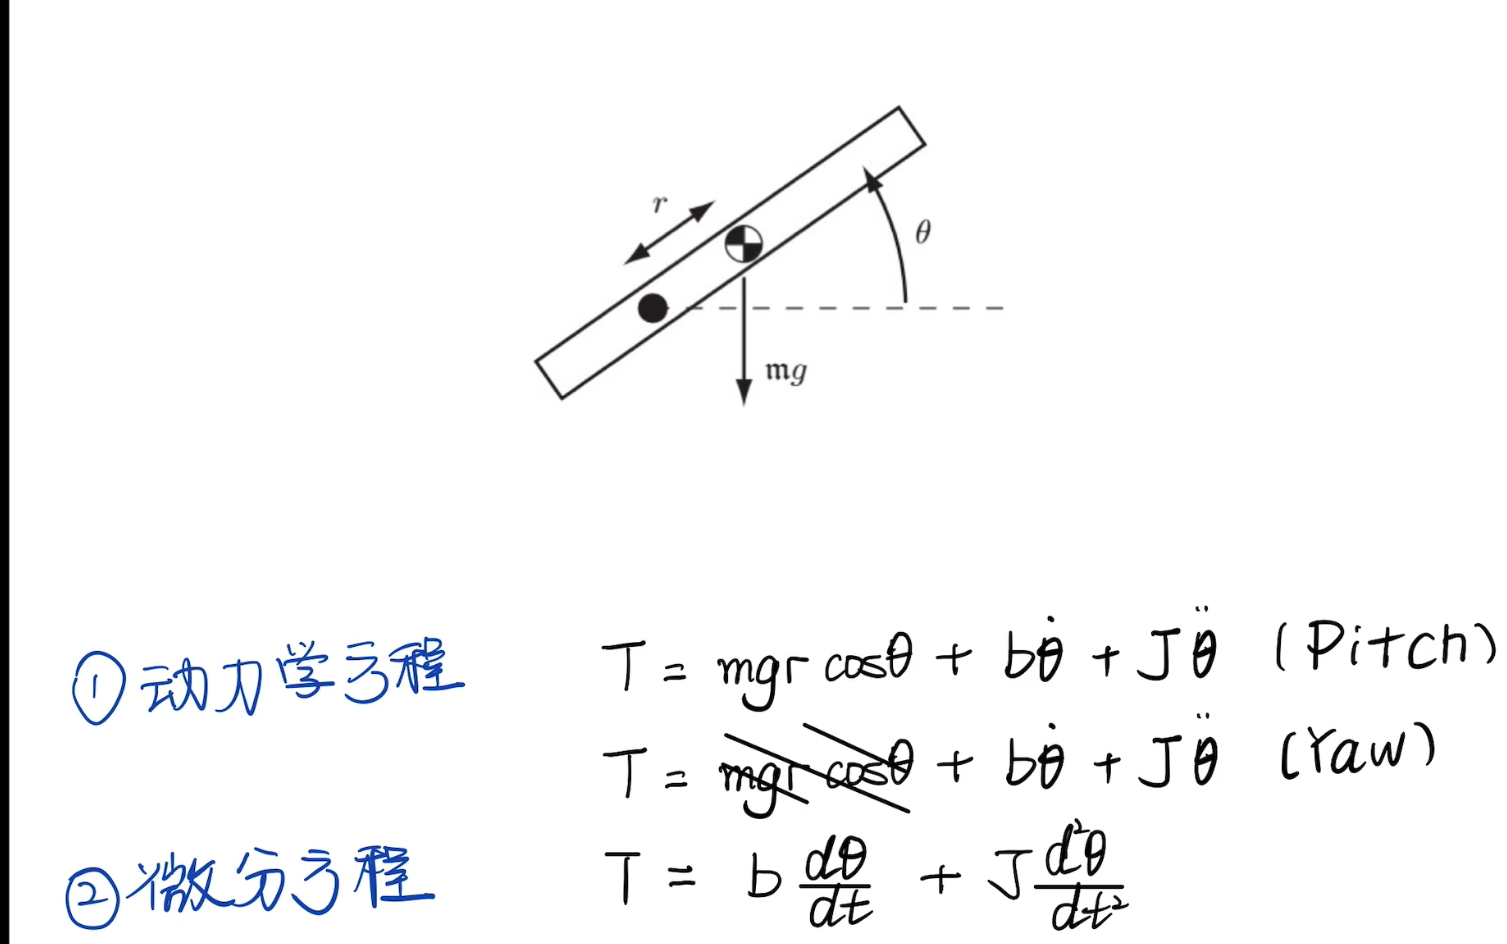 r
θ
mg
① 动力学方程 T = mgr cosθ + bθ̇ + Jθ̈ (Pitch)
T = mgr cosθ + bθ̇ + Jθ̈ (Yaw)
② 微分方程 T = b dθ/dt + J d²θ/dt²